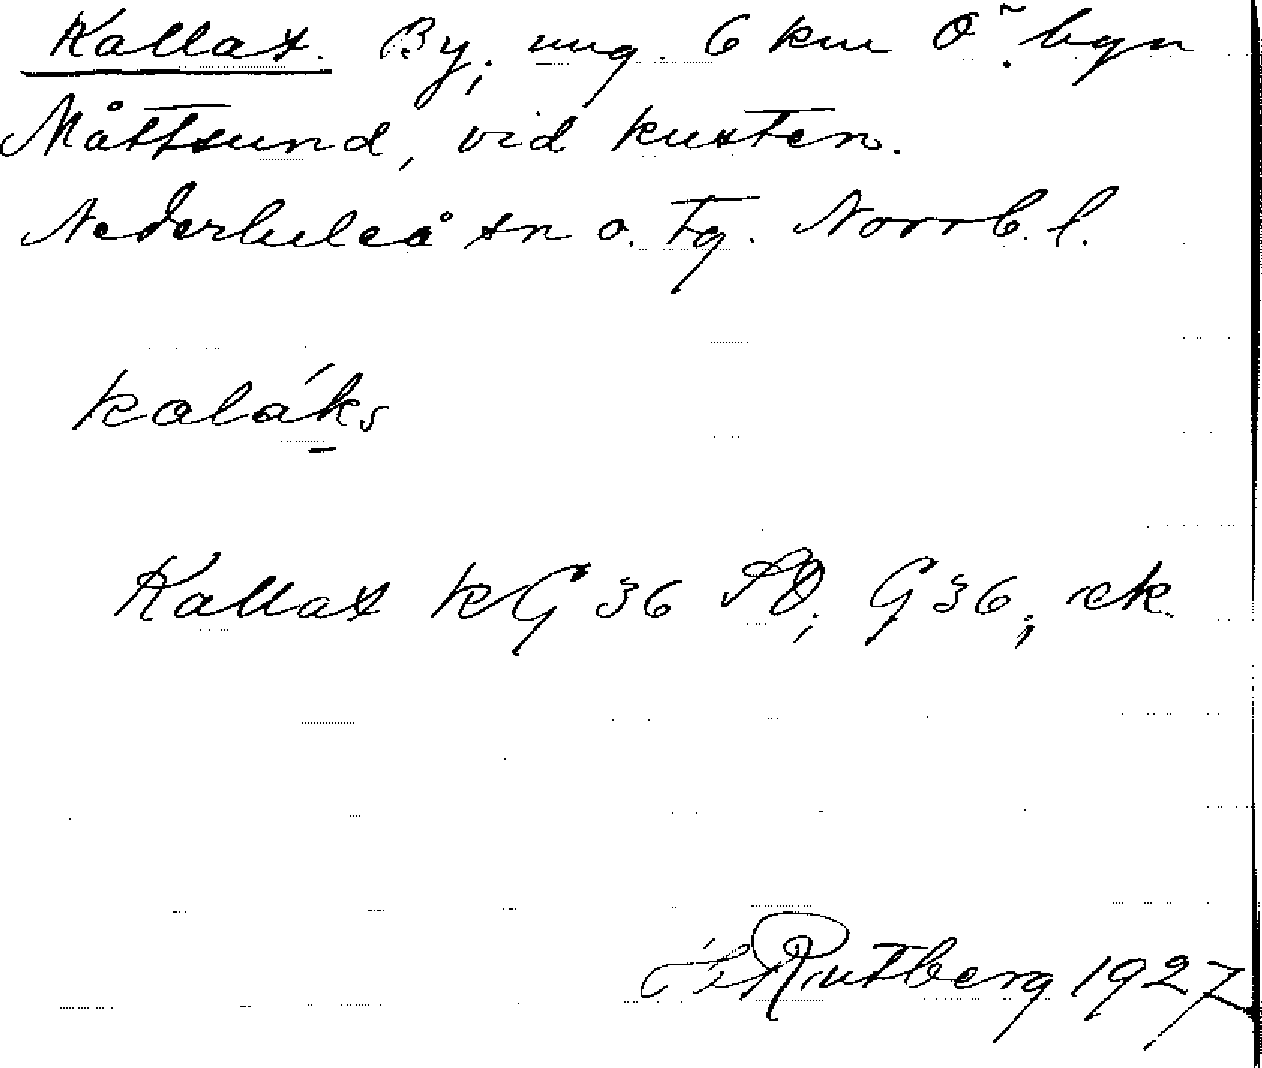 Kallax. By, ung. 6 km Ö. byn
Måttsund, vid kusten.
Nederluleå sn o. tg. Norrb. l.
kaláks
Kallax kG 36 SO, G 36, ek.
Rutberg 1927